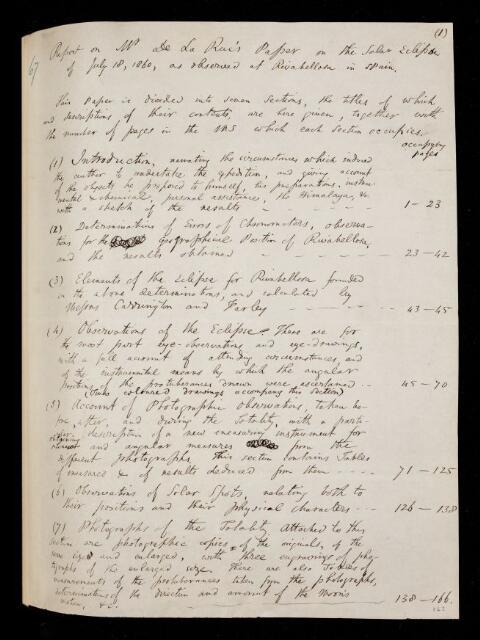 (1)
67
Report on Mr De La Rue's Paper on the Solar Eclipse
of July 18, 1860, as observed at Rivabellosa in Spain.
This Paper is divided into seven Sections, the titles of which
and descriptions of their contents, are here given, together with
the number of pages in the MS which each Section occupies.
occupying
pages
(1) Introduction, narrating the circumstances which induced
the author to undertake the expedition, and giving account
of the objects he proposed to himself, his preparations, instru-
mental & chemical, personal assistances, the Himalaya, &c.
with a sketch of the results - - - - - - 1 — 23
(2) Determinations of Errors of Chronometers, observa-
tions for the geographical Position of Rivabellosa,
and the results obtained - - - - - 23 — 42
(3) Elements of the Eclipse for Rivabellosa founded
on the above determinations, and calculated by
Messrs Carrington and Farley - - - - - 43 — 45
(4) Observations of the Eclipse. These are for
the most part eye-observations and eye-drawings,
with a full account of attending circumstances, and
of the instrumental means by which the angular
positions of the protuberances drawn were ascertained - - 45 — 70
(Two coloured drawings accompany this Section)
(5) Account of Photographic Observations, taken be-
fore, after, and during the Totality, with a parti-
cular description of a new measuring instrument for
obtaining and angular measures from the
different photographs. This section contains Tables
of measures & of results deduced from them - - - 71 — 125
(6) Observations of Solar Spots, relating both to
their positions and their physical characters - - - 126 — 138
(7) Photographs of the Totality. Attached to this
section are photographic copies of the originals, of the
same size and enlarged, with three engravings of pho-
tographs of the enlarged size. There are also Tables of
measurements of the protuberances taken from the photographs,
determinations of the direction and amount of the Moon's
motion, &c. 138 — 166.